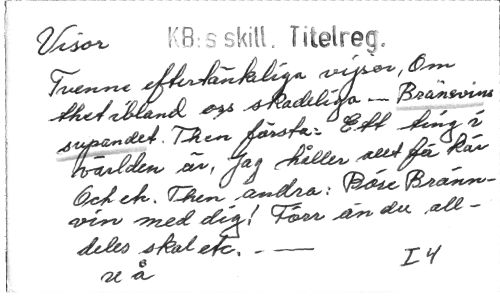 Visor KB:s skill. Titelreg.
Tvenne eftertänkeliga vijsor, Om
thet ibland oss skadeliga — Bränevins
supandet. Then första: Ett ting i
världen är, jag håller rett få kär
Och etc. Then andra: Böse Bränn-
vin med dig! Förr än du all-
deles skal etc. - —
u å I 4